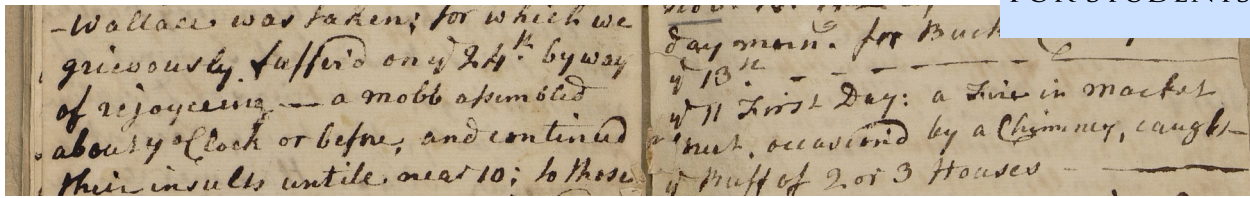 -Wallace was taken; for which we
grievously suffer'd on yᵉ 24ᵗʰ by way
of rejoyceing — a mobb assembled
about 7 oClock or before, and continued
their insults untile near 10; to those
day morn. for Buck
yᵉ 13ᵗʰ
yᵉ 11 First Day: a Fire in Market
street, occasion'd by a Chimney, caught
yᵉ Ruff of 2 or 3 Houses
FOR STUDENTS